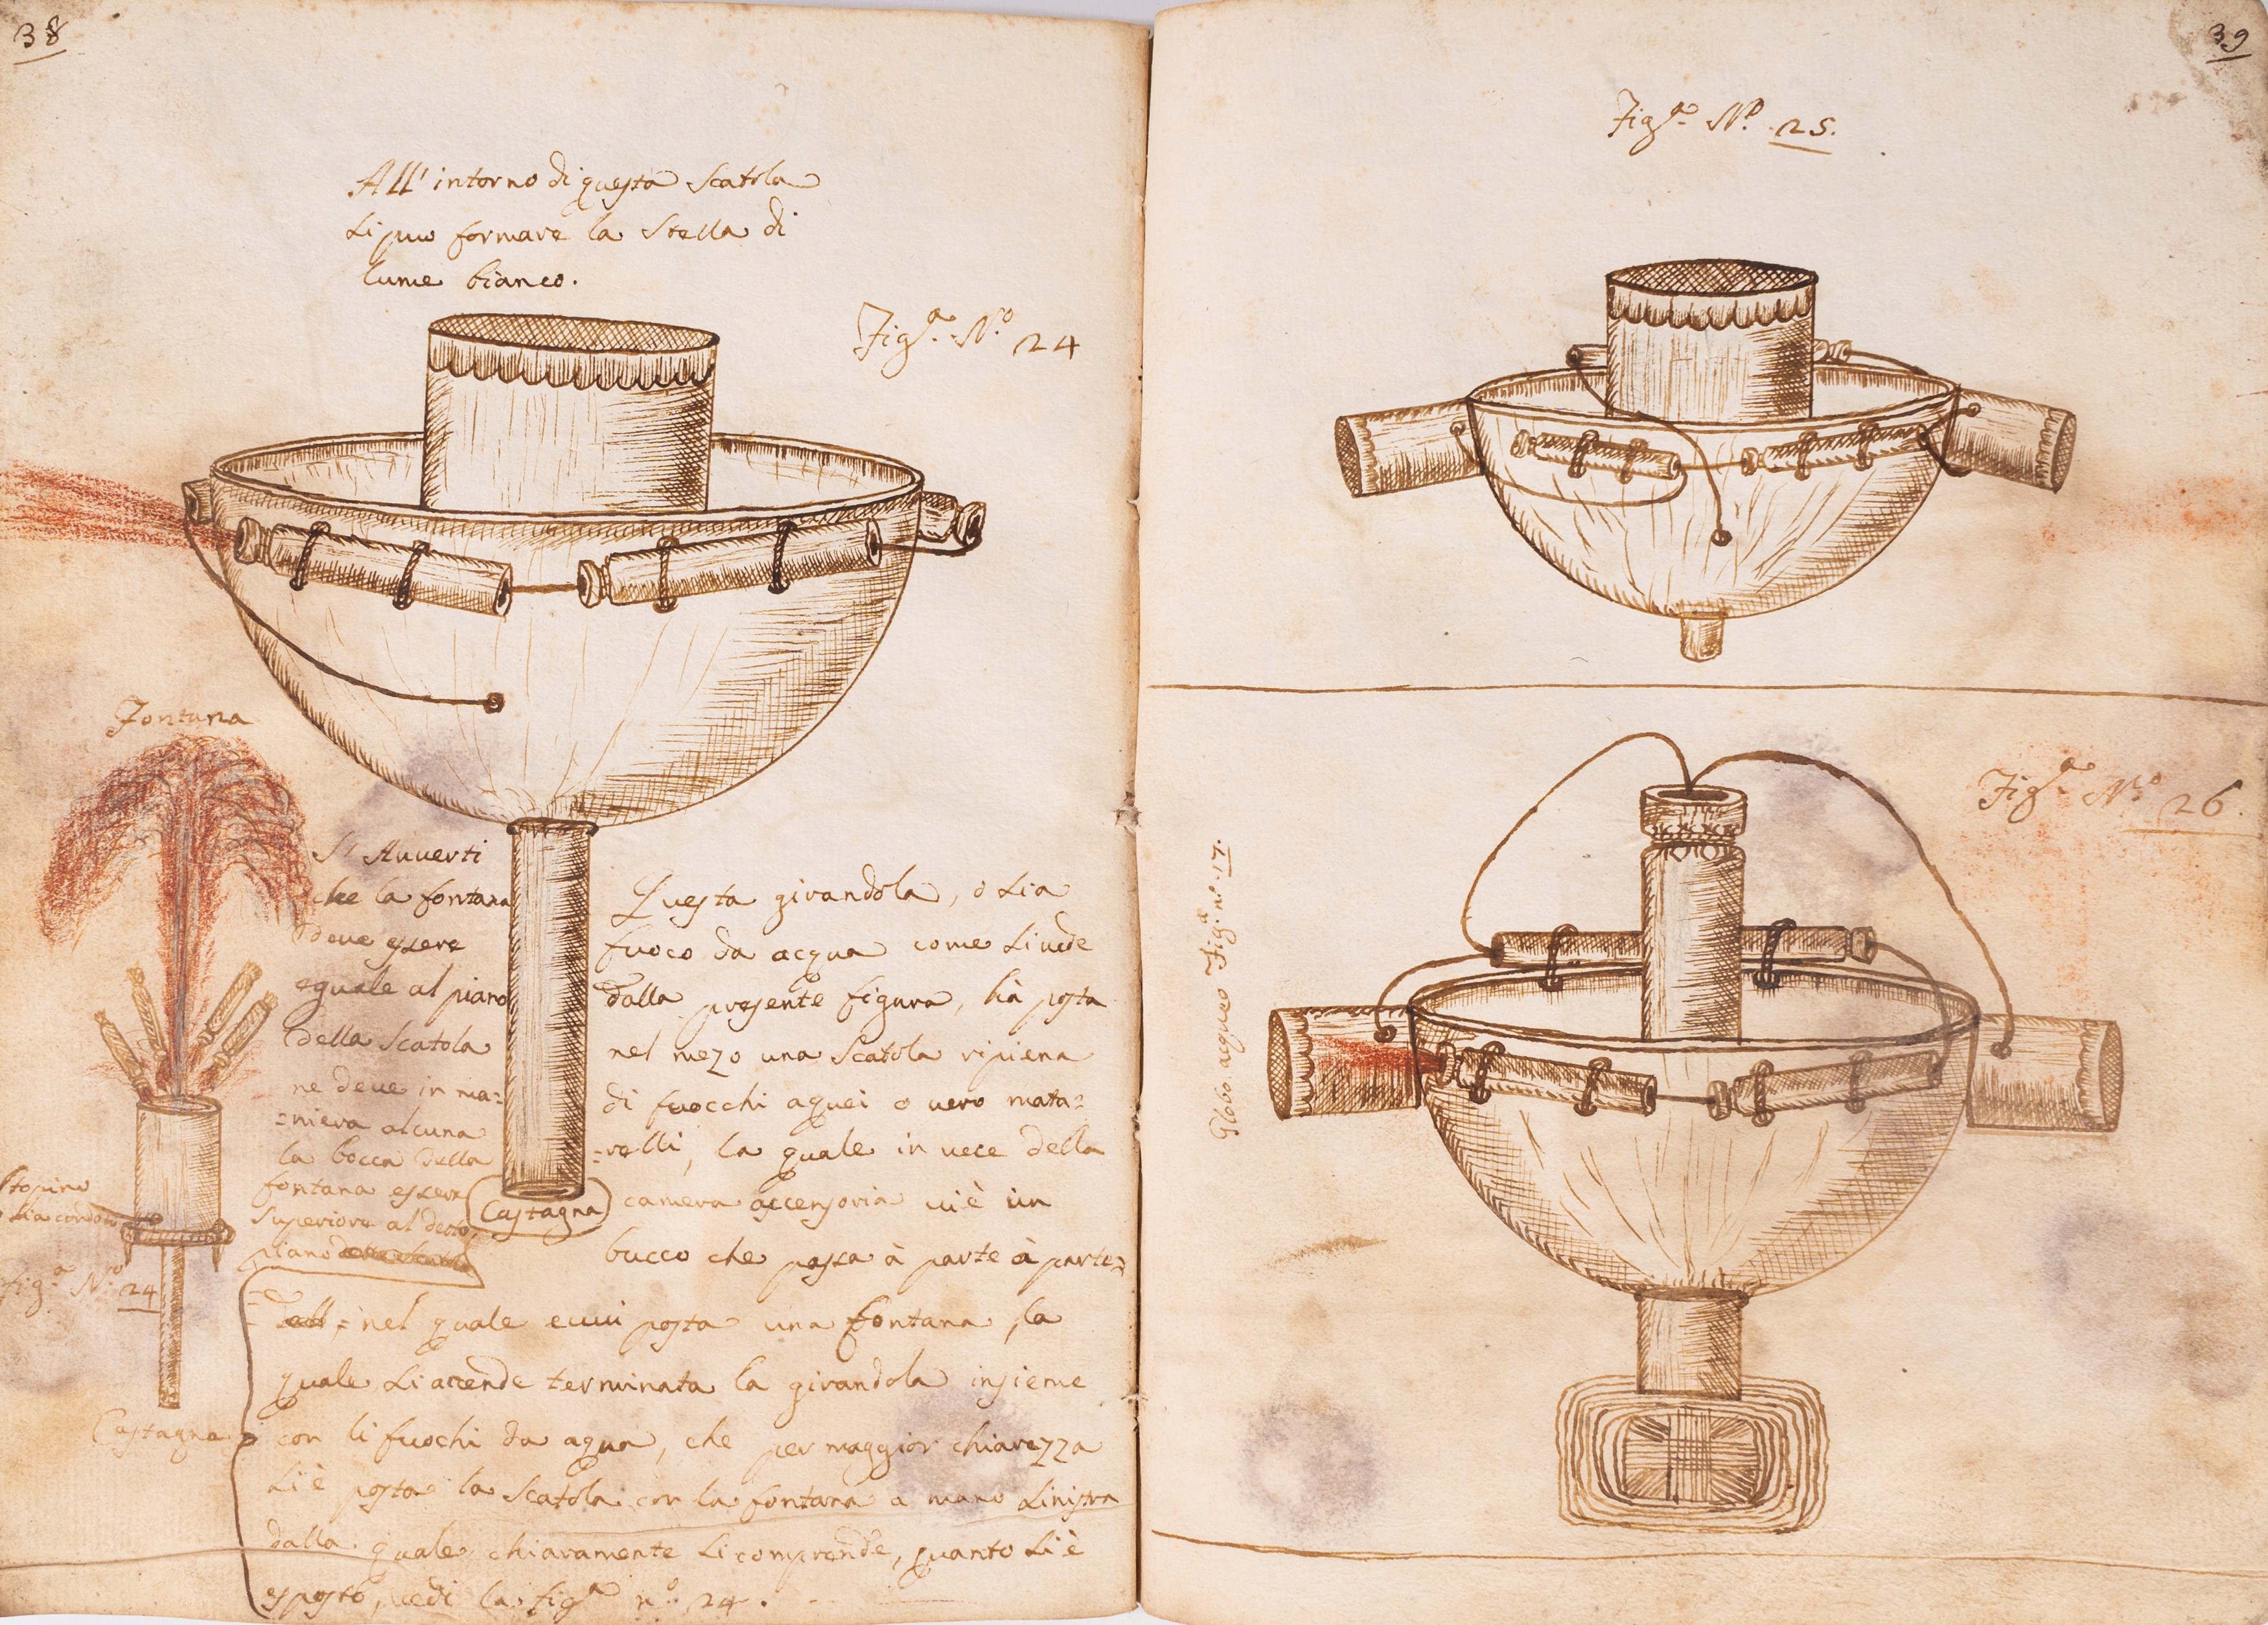 38
All' intorno di questa Scatola
si puo formare la Stella di
lume bianco.
Fig.ª N.º 24
Fontana
S' Auuerti
che la fontana
deue essere
eguale al piano
della Scatola
ne deue in ma=
=niera alcuna
la bocca della
fontana essere
superiore al detto
piano
Stopino
sia condoto
Fig.ª N.ro 24
Castagna
Castagna
Questa girandola, ò sia
fuoco da acqua come si uede
dalla presente figura, hà posta
nel mezo una Scatola ripiena
di fuocchi aquei o uero mata=
=relli, la quale in uece della
camera accensoria ui è un
bucco che passa à parte à parte=
= nel quale eui posta una fontana, la
quale si accende terminata la girandola insieme
con li fuochi da aqua, che per maggior chiarezza
si è posta la Scatola con la fontana a mano sinistra
dalla quale chiaramente si comprende, quanto si è
esposto, uedi la fig.ª n.º 24.
39
Fig.ª N.º 25.
Fig.ª N.º 26.
Globo aqueo Fig.ª n.º 17.